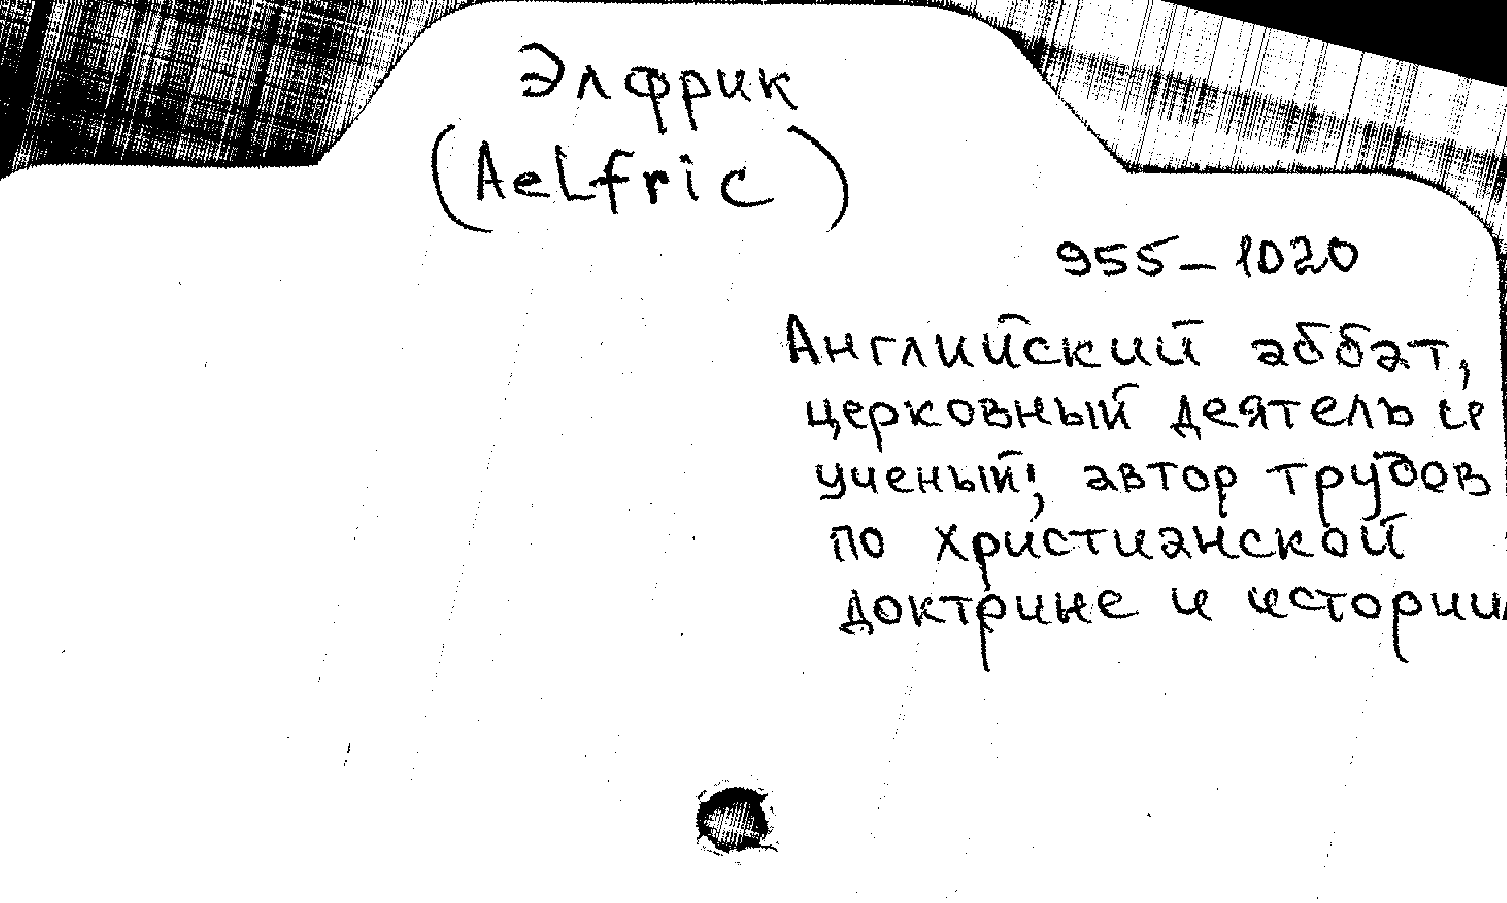 Элфрик
(Aelfric)
955-1020
Английский аббат,
церковный деятель и
ученый; автор трудов
по христианской
доктрине и истории